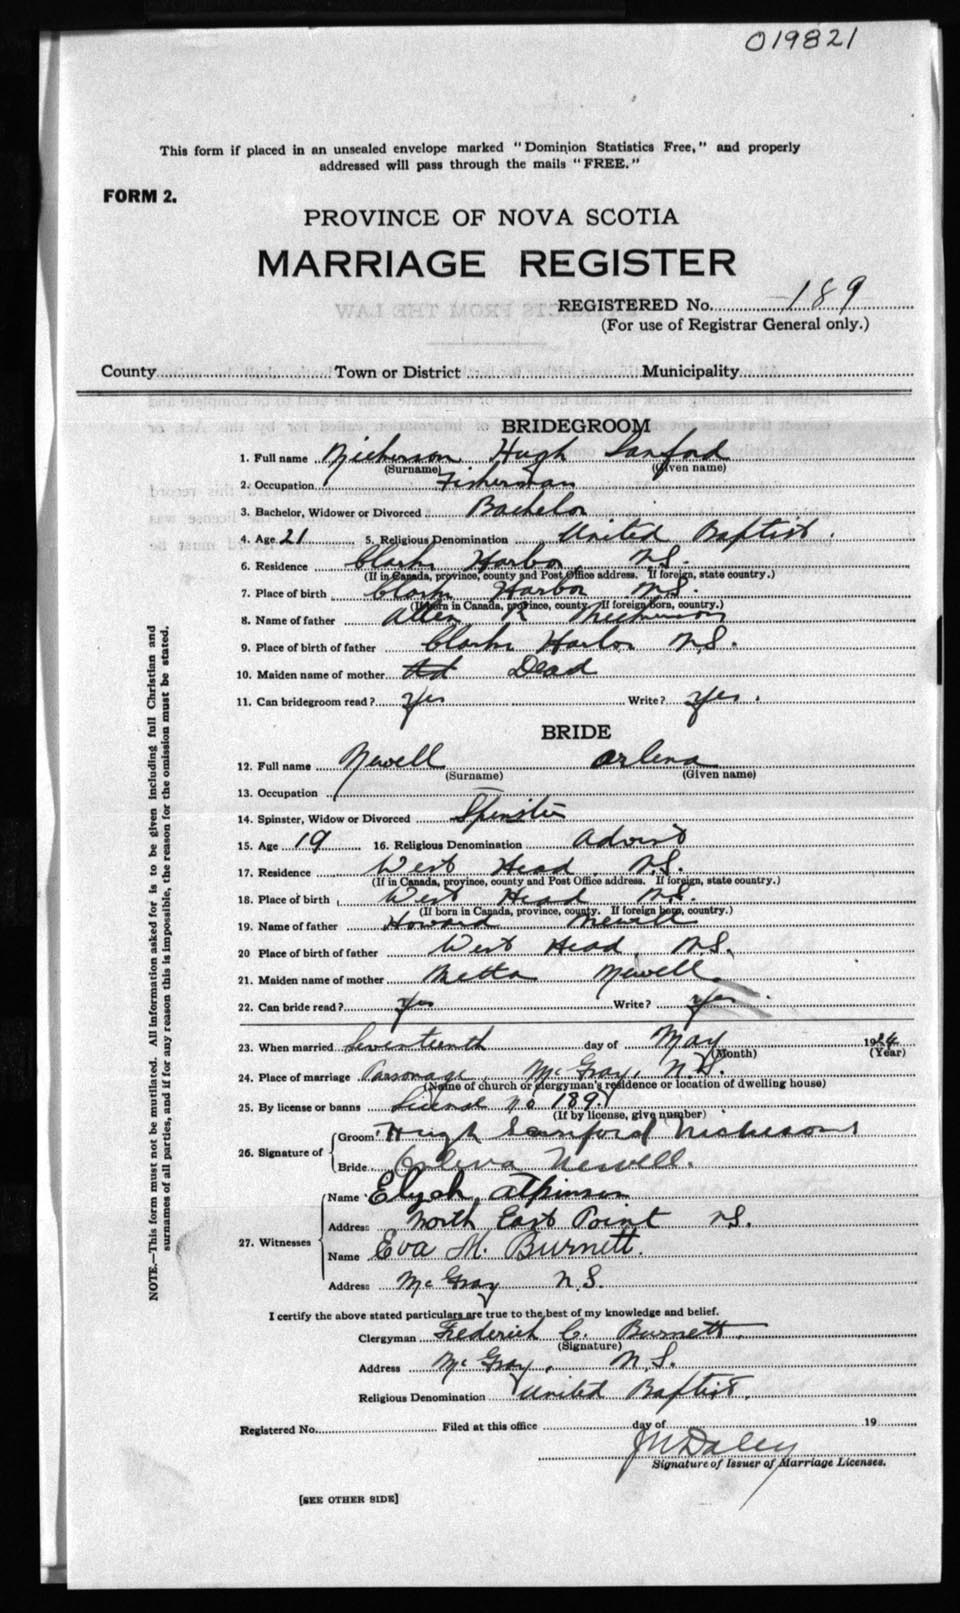 019821
This form if placed in an unsealed envelope marked "Dominion Statistics Free," and properly
addressed will pass through the mails "FREE."
FORM 2.
PROVINCE OF NOVA SCOTIA
MARRIAGE REGISTER
REGISTERED No. 189
(For use of Registrar General only.)
County Town or District Municipality
BRIDEGROOM
1. Full name Nickerson Hugh Sanford
(Surname) (Given name)
2. Occupation Fisherman
3. Bachelor, Widower or Divorced Bachelor
4. Age 21 5. Religious Denomination United Baptist.
6. Residence Clarks Harbor, N.S.
(If in Canada, province, county and Post Office address. If foreign, state country.)
7. Place of birth Clarks Harbor N.S.
(If born in Canada, province, county. If foreign born, country.)
8. Name of father Allen R Nickerson
9. Place of birth of father Clarks Harbor N.S.
10. Maiden name of mother Dead
11. Can bridegroom read? Yes Write? Yes.
BRIDE
12. Full name Newell Orlena
(Surname) (Given name)
13. Occupation
14. Spinster, Widow or Divorced Spinster
15. Age 19 16. Religious Denomination Advent
17. Residence West Head, N.S.
(If in Canada, province, county and Post Office address. If foreign, state country.)
18. Place of birth West Head N.S.
(If born in Canada, province, county. If foreign born, country.)
19. Name of father Howard Newell
20 Place of birth of father West Head, N.S.
21. Maiden name of mother Newell
22. Can bride read? Yes Write? Yes.
23. When married Seventeenth day of May 1924
(Month) (Year)
24. Place of marriage Parsonage, McGray, N.S.
(Name of church or clergyman's residence or location of dwelling house)
25. By license or banns License No 189.
(If by license, give number)
26. Signature of
Groom Hugh Sanford Nickerson
Bride Orlena Newell.
27. Witnesses
Name Elijah Atkinson
Address North East Point N.S.
Name Eva M. Burnett.
Address McGray N.S.
I certify the above stated particulars are true to the best of my knowledge and belief.
Clergyman Frederick C. Burnett.
(Signature)
Address McGray, N.S.
Religious Denomination United Baptist.
Registered No. Filed at this office day of 19
Daley
Signature of Issuer of Marriage Licenses.
[SEE OTHER SIDE]
NOTE.—This form must not be mutilated. All information asked for is to be given including full Christian and
surnames of all parties, and if for any reason this is impossible, the reason for the omission must be stated.